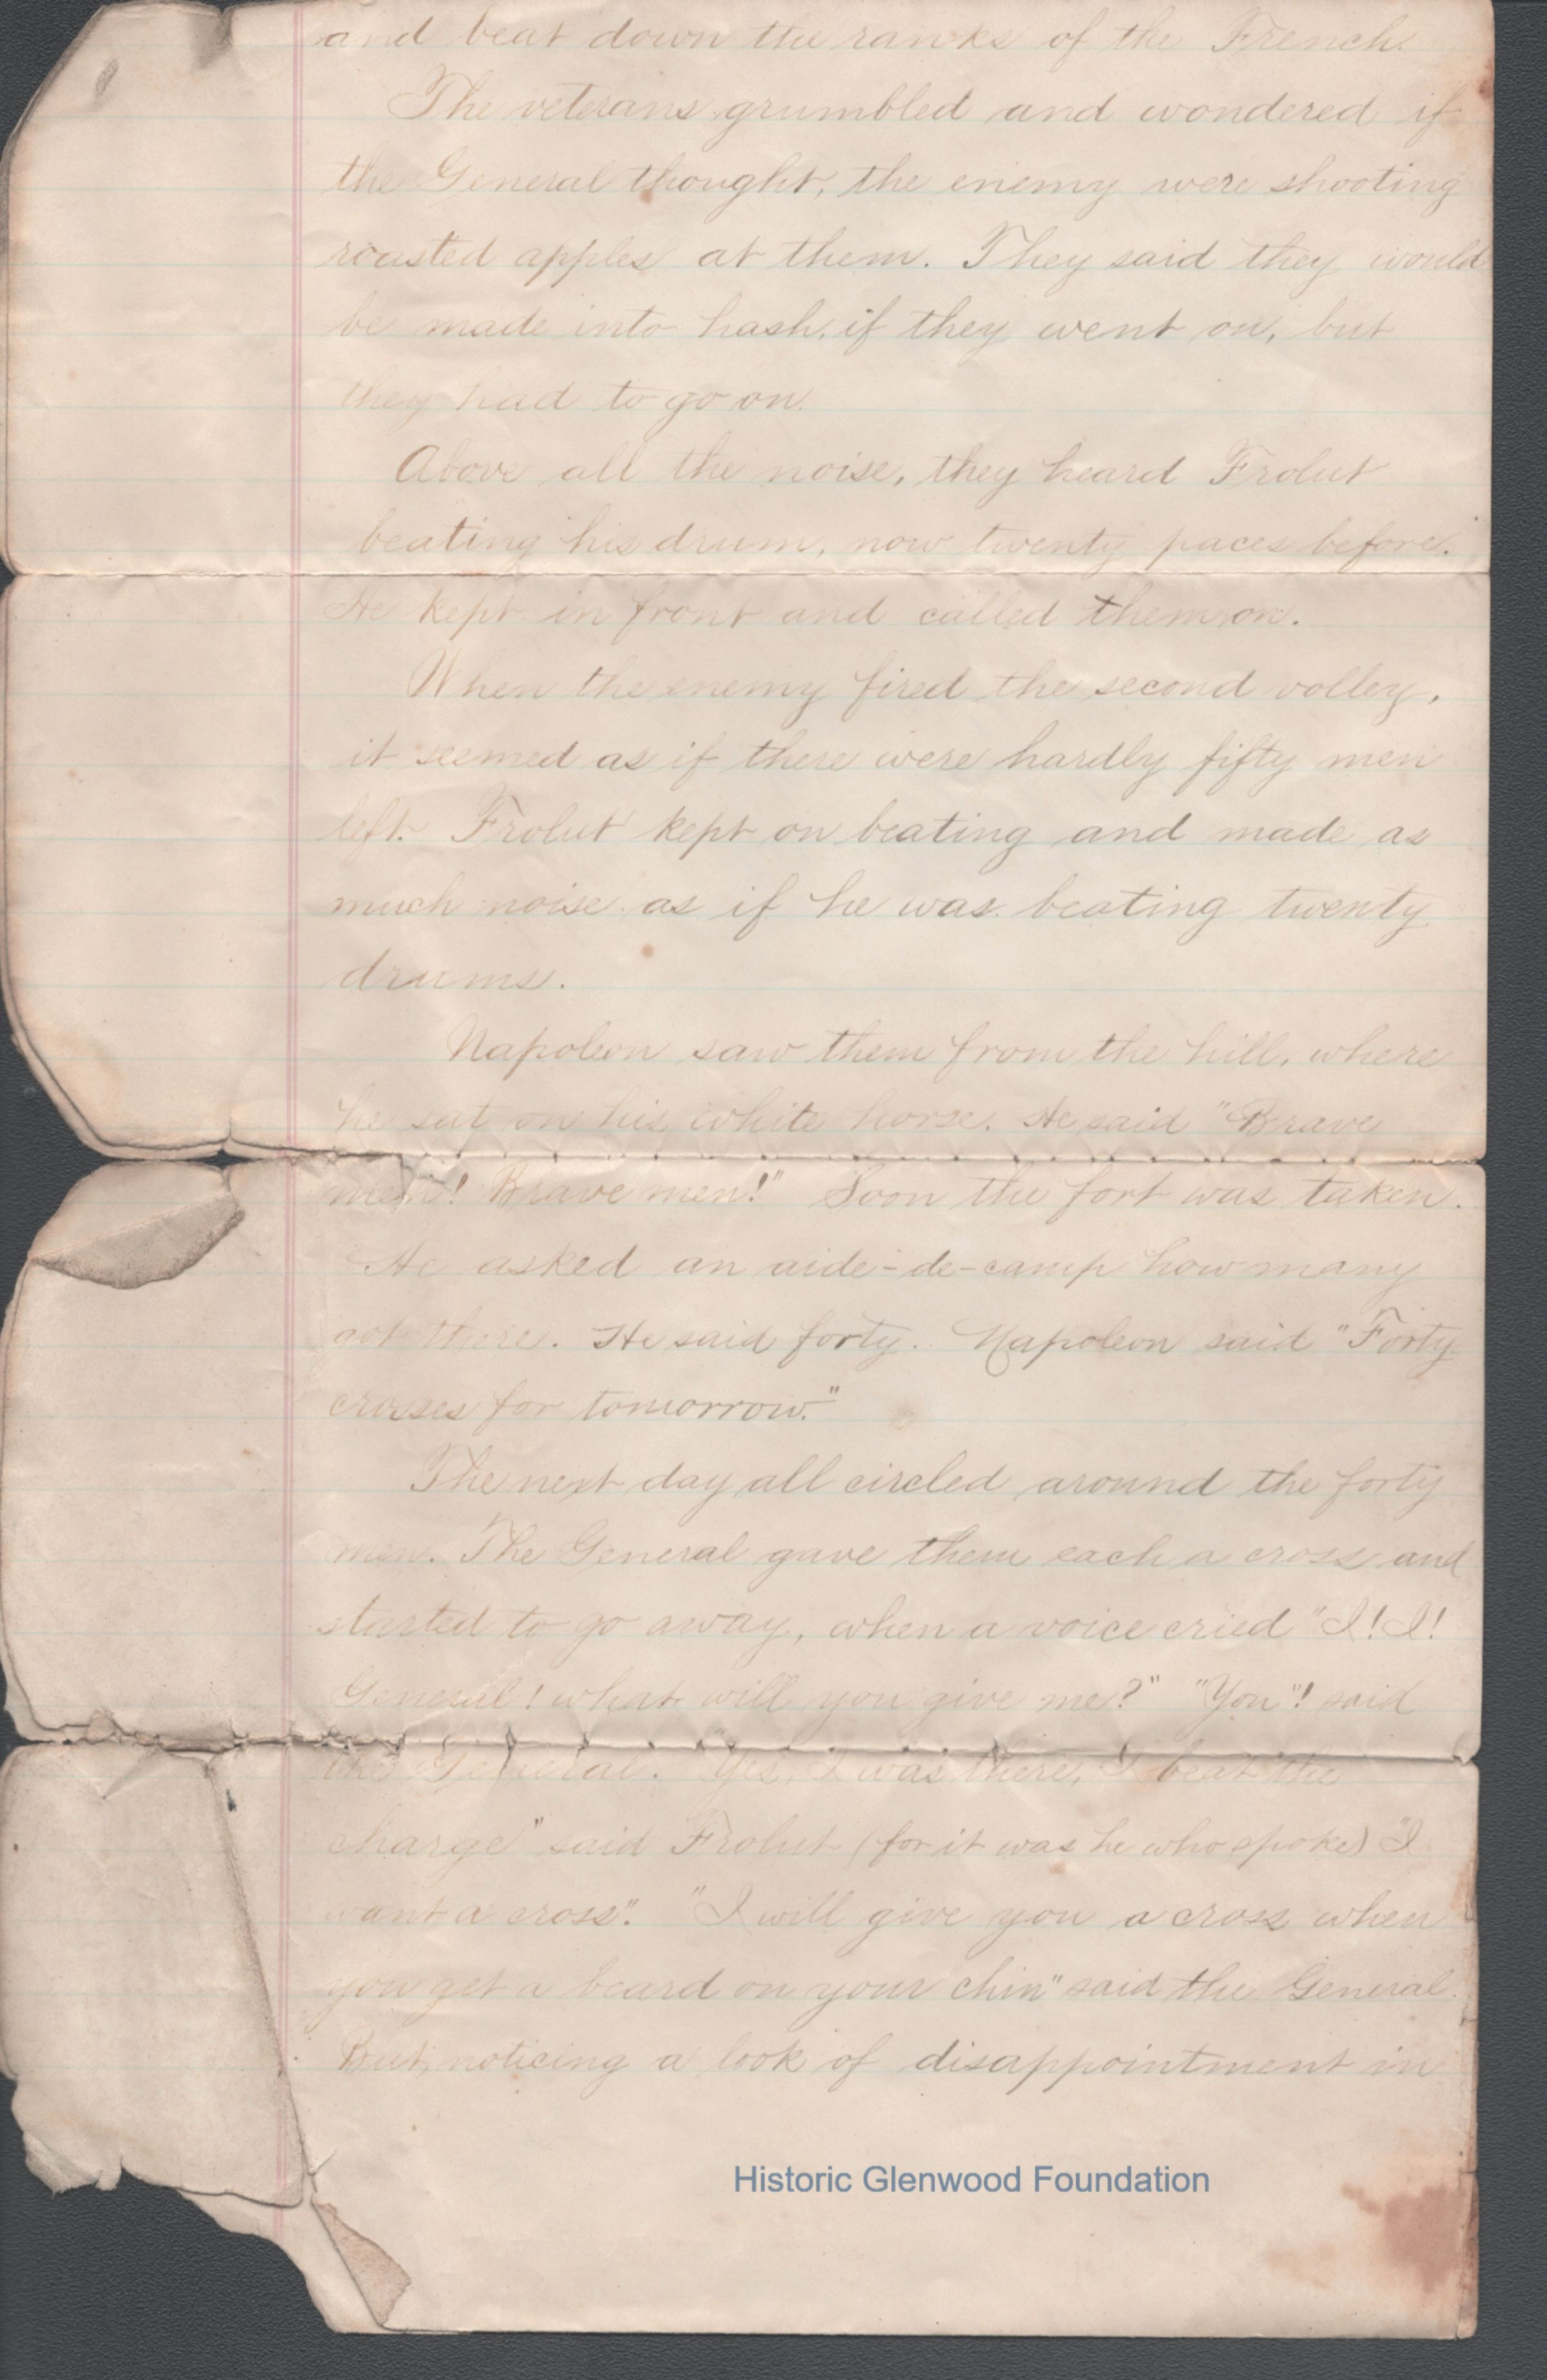 and beat down the ranks of the French.
The veterans grumbled and wondered if
the General thought, the enemy were shooting
roasted apples at them. They said they would
be made into hash, if they went on, but
they had to go on.
Above all the noise, they heard Frolut
beating his drum, now twenty paces before.
He kept in front and called them on.
When the enemy fired the second volley,
it seemed as if there were hardly fifty men
left. Frolut kept on beating and made as
much noise as if he was beating twenty
drums.
Napoleon saw them from the hill, where
he sat on his white horse. He said "Brave
men! Brave men!" Soon the fort was taken.
He asked an aide-de-camp how many
got there. He said forty. Napoleon said "Forty
crosses for tomorrow."
The next day all circled around the forty
men. The General gave them each a cross and
started to go away, when a voice cried "I! I!
General! what will you give me?" "You"! said
the General. "Yes, I was there, I beat the
charge" said Frolut (for it was he who spoke) "I
want a cross". "I will give you a cross when
you get a beard on your chin" said the General.
But noticing a look of disappointment in
Historic Glenwood Foundation